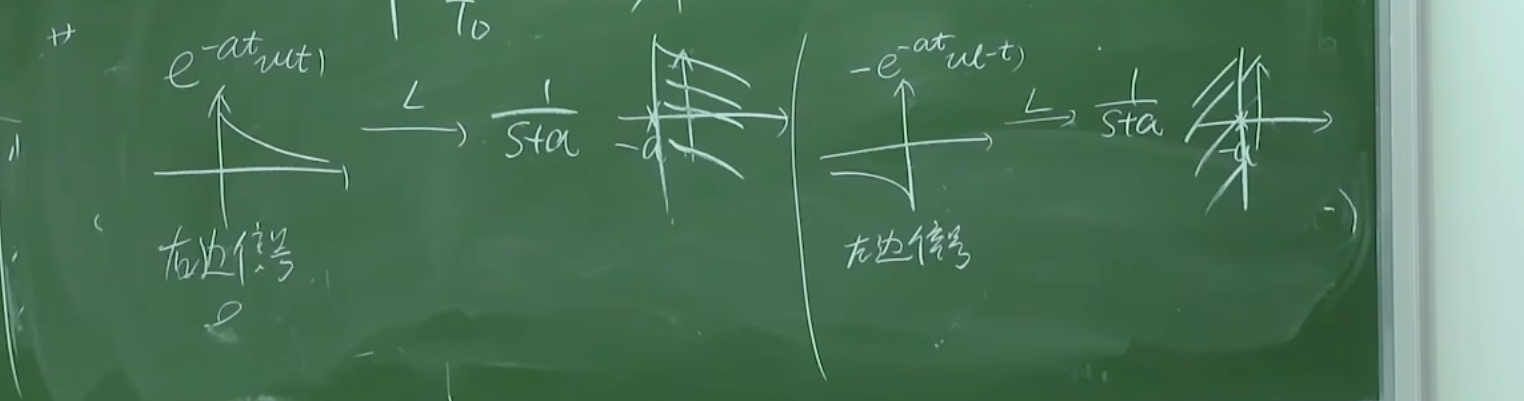 T₀
e^{-at}u(t)
L
1/(s+a)
-a
右边信号
-e^{-at}u(-t)
L
1/(s+a)
-a
左边信号